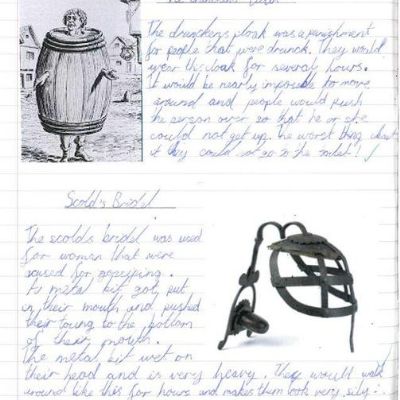 The drunckens cloak was a punishment
for people that were drunck. They would
wear this cloak for several hours.
It would be nearly imposible to move
around and people would push
the person over so that he or she
could not get up. The worst thing about
it they could not go to the toilet!
Scold's Bridel
The scolds bridel was used
for woman that were
acused for
A metal bit got put
in their mouth and pushed
their toung to the bottom
of their mouth.
The metal bit wet on
their head and is very heavy. They would walk
around like this for hours and makes them look very sily